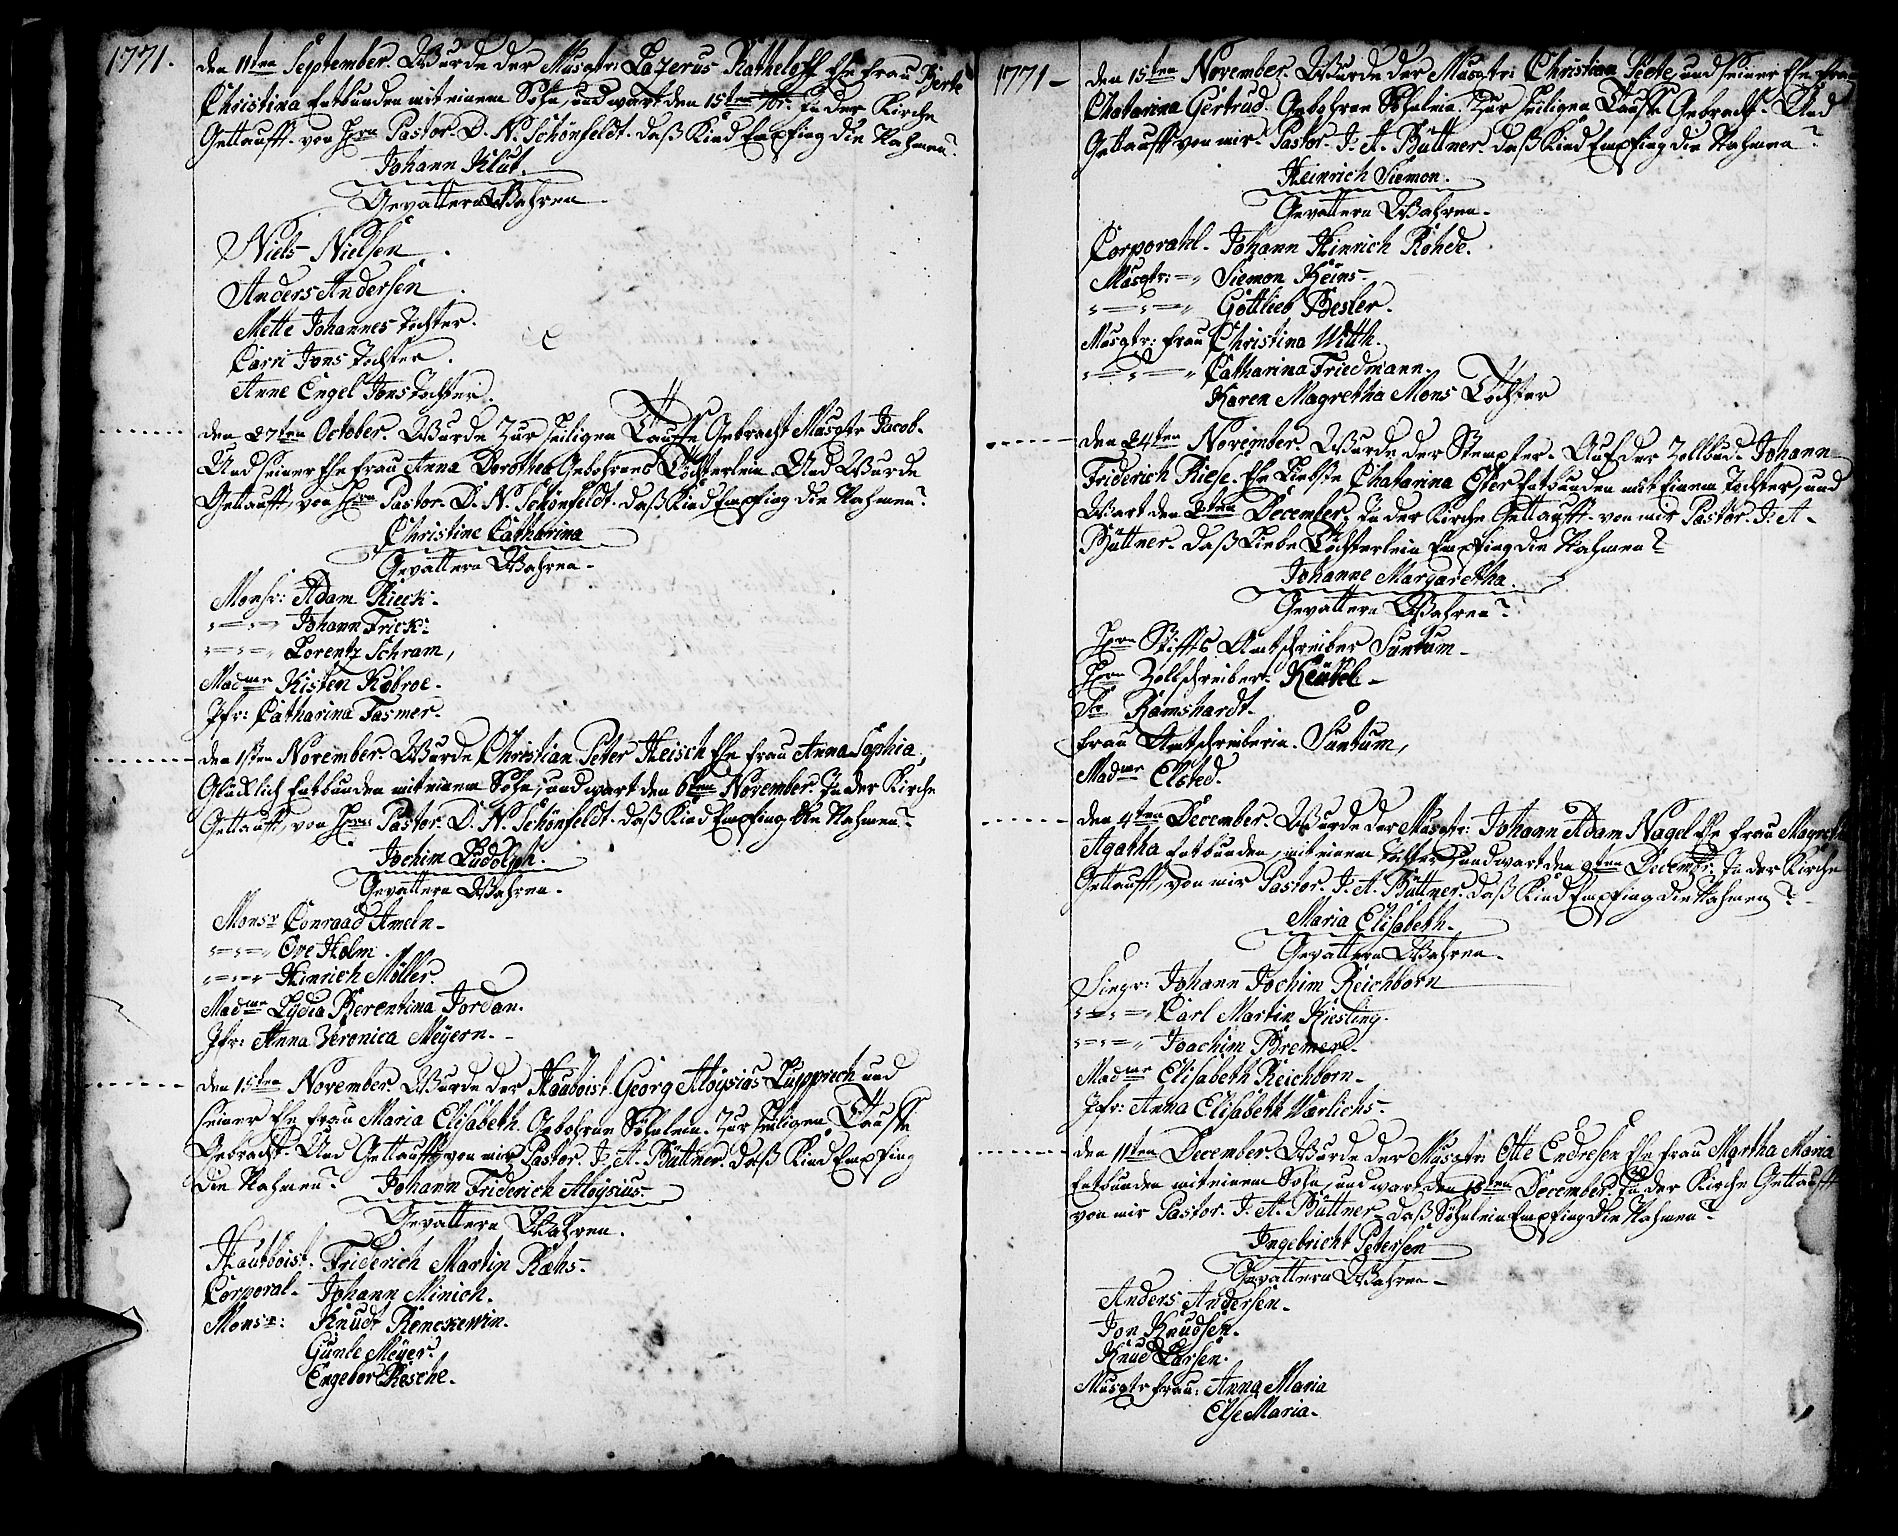 1771.
den 11ten September. Wurde der Musqtr: Lazerus Ratheloff Ehe frau Berte
Christina Entbunden mit einem Sohn, und wart den 15ten In der Kirche
Gettaufft. von Hrn Pastor. D. N. Schönfeldt. daß Kind Empfing die Nahmen.
Johann Klüt.
Gevattern Wahren.
Niels Nielsen.
Anders Andersen.
Mette Johannes Tochter.
Carri Jons Tochter.
Anne Engel Jons Tochter.
den 27ten October. Wurde Zur heiligen Tauffe Gebracht Musqtr Jacob.
Und seiner Ehe frau Anna Dorothea Gebohrnes Töchterlein. Und Wurde
Gettaufft, von Hrn Pastor. D. N. Schönfeldt. daß Kind Empfing die Nahmen.
Christine Catharina
Gevattern Wahren.
Monsr: Adam Rieck.
Johann Frick:
Lorentz Schram,
Madme Kisten Kobroe.
Jfr: Catharina Fasmer.
den 1sten November. Wurde Christian Peter Heisch Ehe frau Anna Sophia,
Glücklich Entbunden mit einem Sohn, und wart den 6ten November. In der Kirche
Gettaufft, von Hrn: Pastor. D. N. Schönfeldt. daß Kind Empfing die Nahmen.
Jochim Ludolph.
Gevattern Wahren.
Monsr Conraad Ameln.
Ove Holm.
Hinrich Möller.
Madme Lydia Berentina Jordan.
Jfr: Anna Veronica Meyern.
den 15ten November. Wurde der Hauboist Georg Aloysius Lupprich und
seiner Ehe frau Maria Elisabeth. Gebohrne Söhnlein. Zur heiligen Tauffe
Gebracht. Und Gettaufft von mir Pastor. J. A. Büttner. daß Kind Empfing
die Nahmen. Johann Friderich Aloysius.
Gevattern Wahren.
Hautboist. Friderich Martin Rahs.
Corporal. Johann Minich.
Monsr: Knudt Renckewin.
Gunle Meyer.
Engebor Resche.
1771
den 15ten November. Wurde der Musqtr: Christina Peete, und seiner Ehe frau
Chatarina Gertrud. Gebohrne Söhnlein. Zur heiligen Tauffe Gebracht. Und
Gettaufft von mir. Pastor. J. A. Büttner. daß Kind Empfing die Nahmen
Heinrich Siemon.
Gevattern Wahren.
Corporahl. Johann Hinrich Rohde.
Musqtr: Siemon Heins.
Gottlieb Besler.
Musqtr: frau Christina Witth.
Catharina Friedmann.
Karen Magretha Mons Tochter
den 24ten November. Wurde der Stempler. Auf der Zollbud. Johann
Friderich Riese. Ehe Liebste Chatarina Ester Entbunden mit Einem Tochter, und
Wart den 2ten December. In der Kirche Gettaufft. von mir Pastor. J. A.
Büttner. daß Liebe Töchterlein Empfing die Nahmen
Johanne Margaretha.
Gevattern Wahren
Hrn Stiffts Amtschreiber Suntum.
Hrn Zollschreiber.
Ramshardt.
frau Amtschreiberin. Suntum,
Madme Elsted.
den 4ten December. Wurde der Musqtr: Johann Adam Nagel Ehe frau Magretha
Agatha Entbunden, mit einem Tochter, und wart den 8ten Decembr: In der Kirche
Gettaufft, von mir Pastor. J. A. Büttner. daß Kind Empfing die Nahmen
Maria Elisabeth.
Gevattern Wahren.
Siegr: Johann Jochim Reichborn
Carl Martin Kiesling.
Joachim Bremer.
Madme Elisabeth Reichborn.
Jfr: Anna Elisabeth Warlichs.
den 11ten December. Wurde der Musqtr: Otte Endresen Ehe frau Martha Maria
Entbunden mit einem Sohn, und wart den 15ten December. In der Kirche Gettaufft
von mir Pastor. J. A. Büttner. daß Söhnlein Empfing die Nahmen
Ingebricht Petersen
Gevattern Wahren.
Anders Andersen.
Jon Knudsen.
Knud Larsen.
Musqtr frau: Anna Maria
Else Maria.